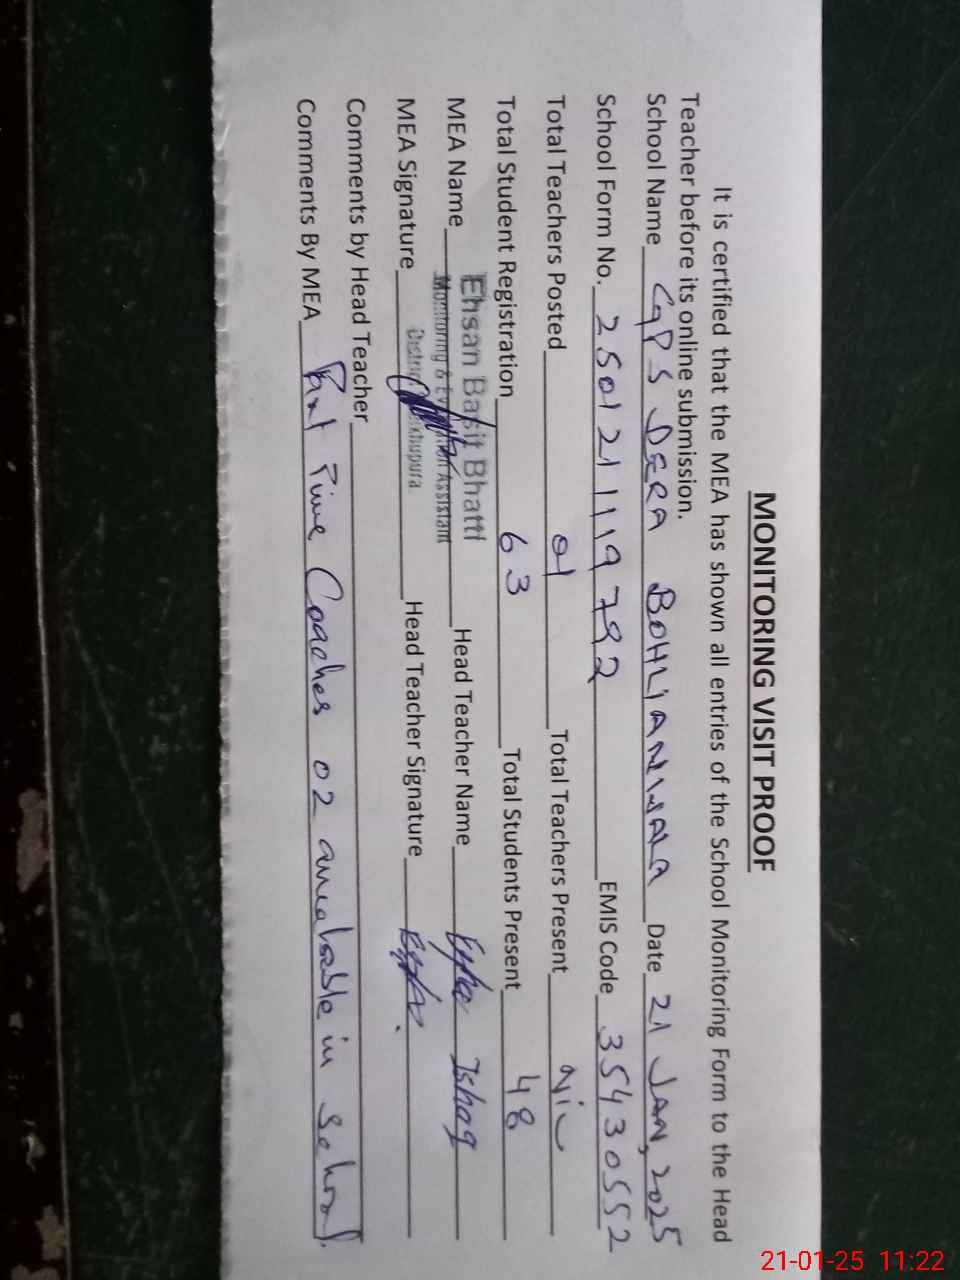 MONITORING VISIT PROOF
It is certified that the MEA has shown all entries of the School Monitoring Form to the Head
Teacher before its online submission.
School Name GPS DERA BOHLIANWALA Date 21 JAN, 2025
School Form No. 250121119792 EMIS Code 35430552
Total Teachers Posted 01 Total Teachers Present Nil
Total Student Registration 63 Total Students Present 48
MEA Name Ehsan Basit Bhatti Head Teacher Name Ishaq
Monitoring & Evaluation Assistant
MEA Signature District Sheikhupura. Head Teacher Signature
Comments by Head Teacher
Comments By MEA Part Time Coaches 02 available in School.
21-01-25 11:22